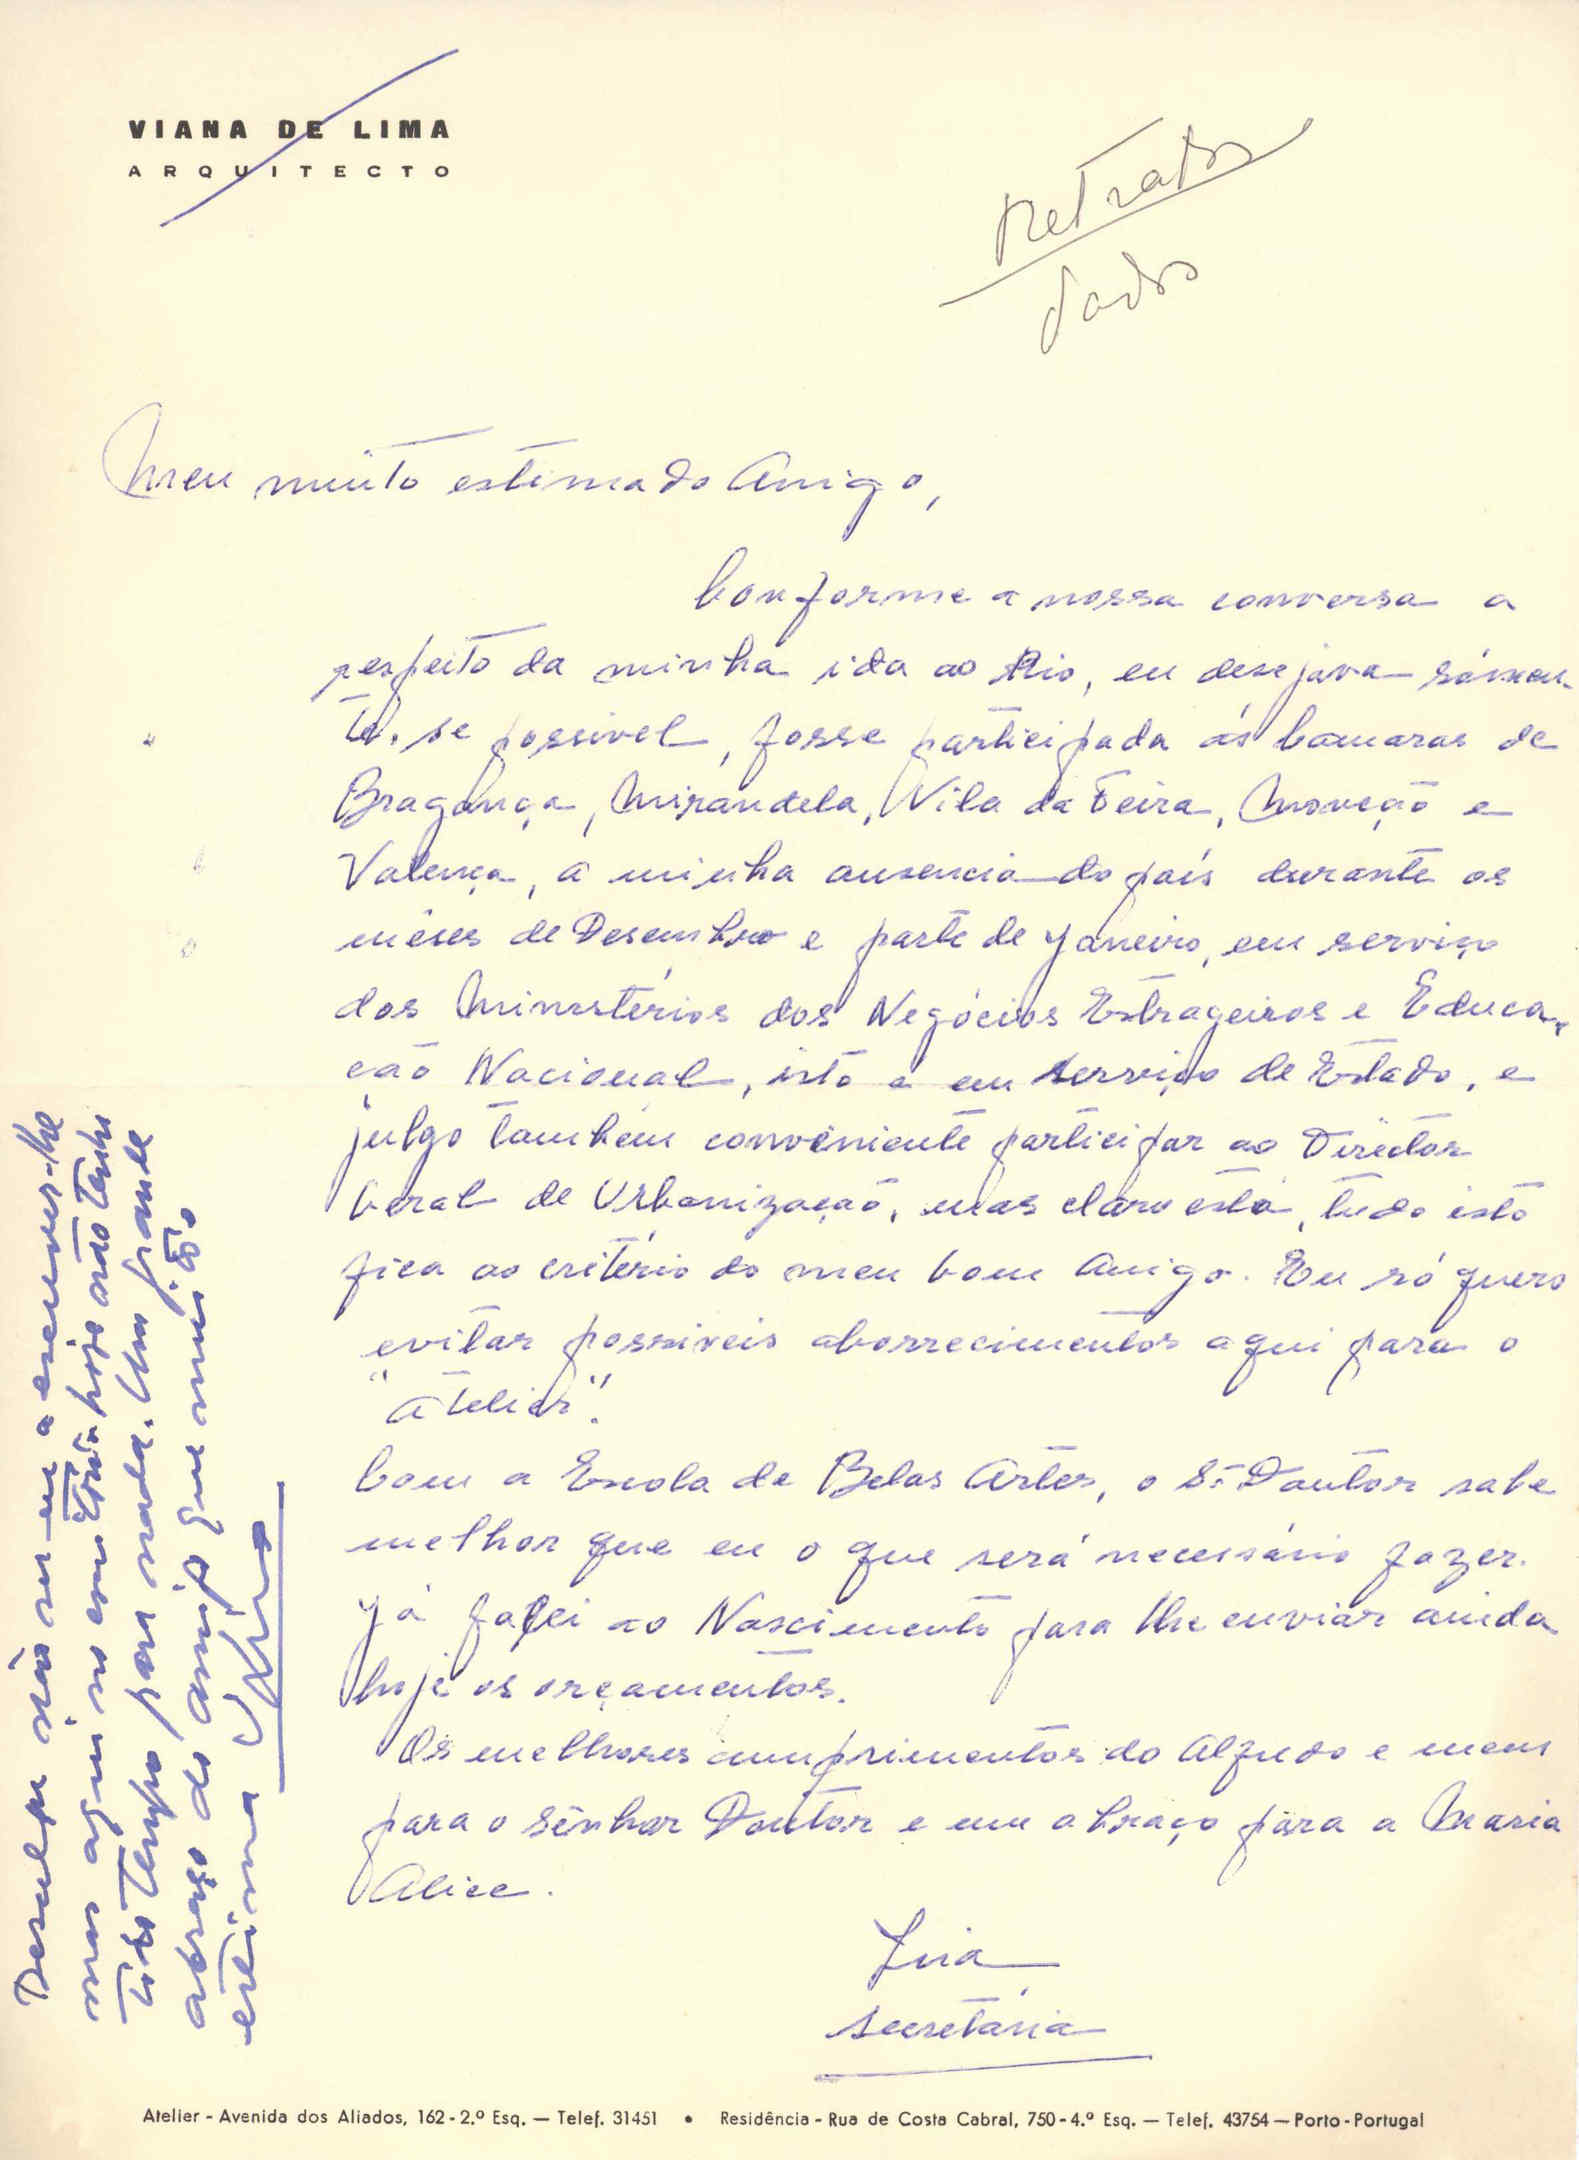 VIANA DE LIMA
ARQUITECTO
Retratos
dados
Meu muito estimado Amigo,
Conforme a nossa conversa a
respeito da minha ida ao Rio, eu desejava sómen-
te, se possivel, fosse participada ás Camaras de
Bragança, Mirandela, Vila da Feira, Monção e
Valença, a minha ausencia do país durante os
mêses de Desembro e parte de Janeiro, em serviço
dos Ministérios dos Negócios Estrageiros e Educa-
ção Nacional, isto é em serviço de Estado, e
julgo também conveniente participar ao Director
Geral de Urbanização, mas claro está, tudo isto
fica ao critério do meu bom Amigo. Eu só quero
evitar possiveis aborrecimentos aqui para o
"Atelier".
Com a Escola de Belas Artes, o Sr Doutor sabe
melhor que eu o que será necessário fazer.
Já falei ao Nascimento para lhe enviar ainda
hoje os orçamentos.
Os melhores cumprimentos do Alfredo e meus
para o Senhor Doutor e um abraço para a Maria
Alice.
secretária
Desculpe não ser eu a escrever-lhe
mas aqui no escritório hoje não tenho
tido tempo para nada. Um grande
abraço do amigo que muito o
estima
Atelier - Avenida dos Aliados, 162 - 2.º Esq. — Telef. 31451 • Residência - Rua de Costa Cabral, 750 - 4.º Esq. — Telef. 43754 — Porto - Portugal